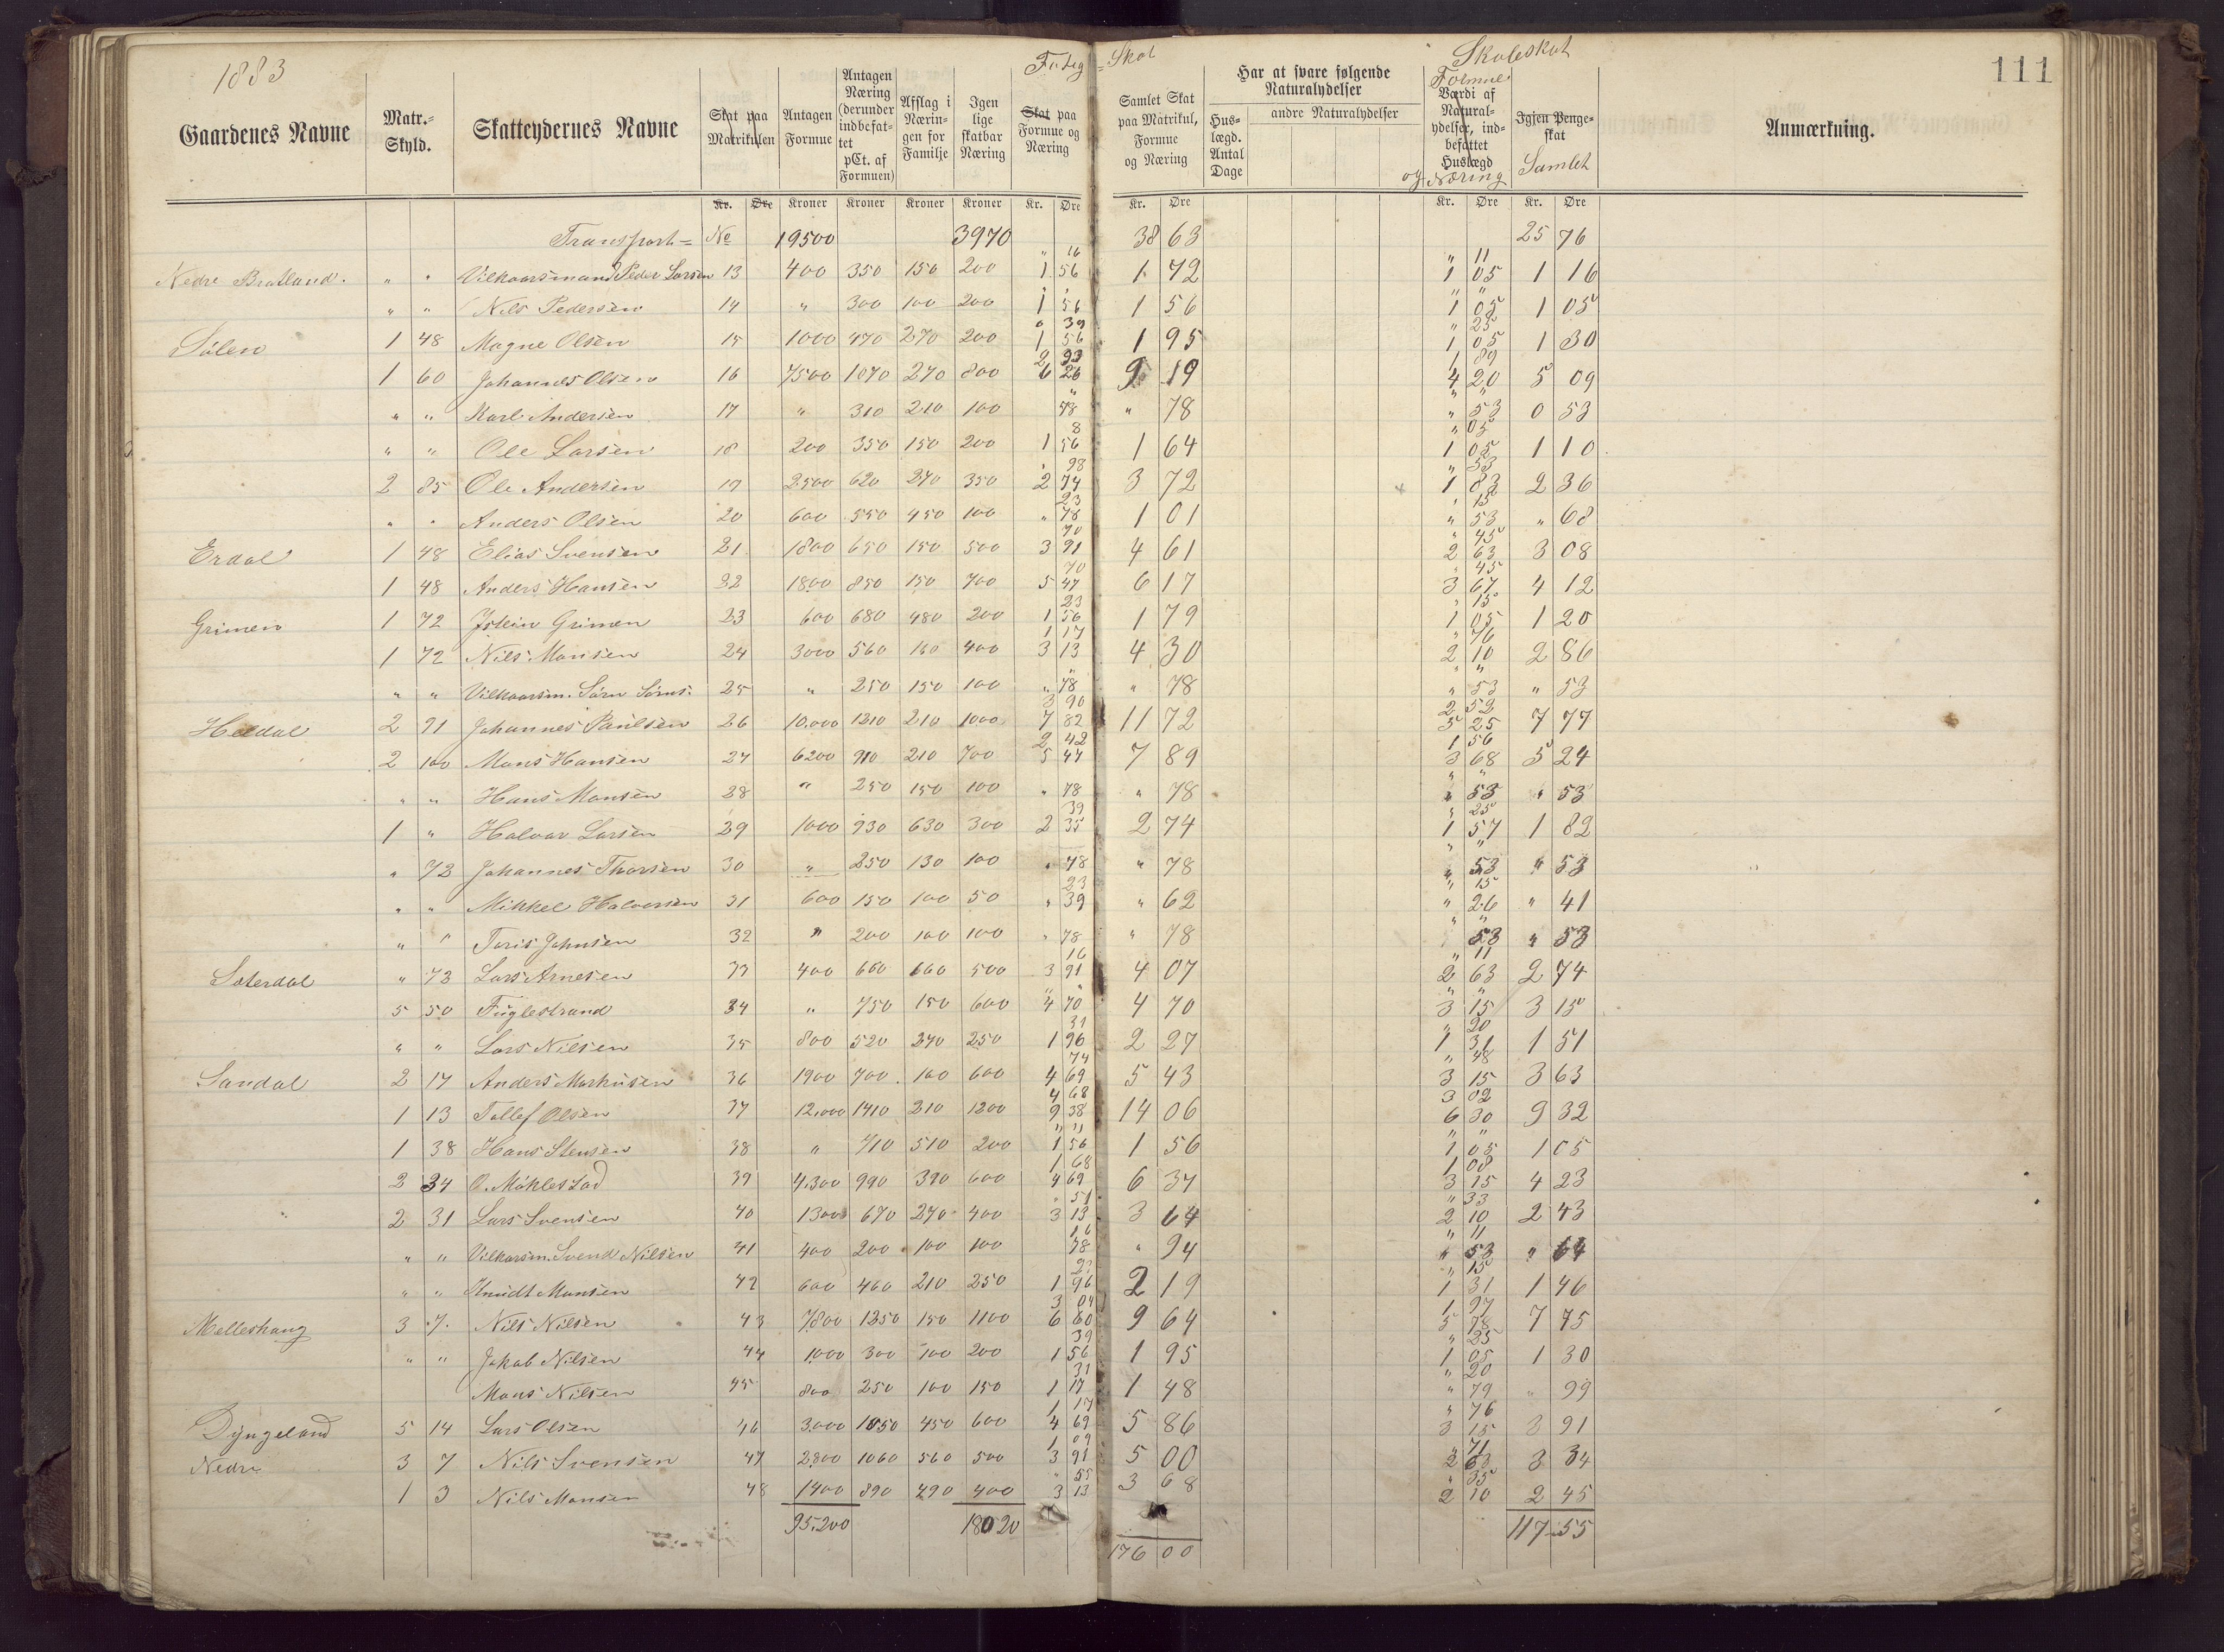 1883 Fattig = Skat Skoleskat 111
Gaardenes Navne Matr.=Skyld. Skatteydernes Navne Skat paa Matrikulen Antagen Formue Antagen Næring (derunder indbefattet pCt. af Formuen) Afslag i Næringen for Familje Igen lige skatbar Næring Skat paa Formue og Næring Samlet Skat paa Matrikul, Formue og Næring Har at svare følgende Naturalydelser Huslægd. Antal Dage andre Naturalydelser Formue Værdi af Naturalydelser, indbefattet Huslægd og Næring Igjen Pengeskat Samlet Anmærkning.
Kr. Øre Kroner Kroner Kroner Kroner Kr. Øre Kr. Øre Kr. Øre Kr. Øre
Transport = No 19500 3970 38 63 25 76
" 16 " 11
Nedre Bratland. " " Vilkaarsmand Peder Larsen 13 400 350 150 200 1 56 1 72 1 05 1 16
" " " "
" " Nils Pedersen 14 " 300 100 200 1 56 1 56 1 05 1 05
" 39 " 25
Sälen 1 48 Magne Olsen 15 1000 470 270 200 1 56 1 95 1 05 1 30
2 93 1 89
1 60 Johannes Olsen 16 7500 1070 270 800 6 26 9 19 4 20 5 09
" " "
" " Karl Andersen 17 " 310 210 100 78 " 78 " 53 0 53
8 " 05
" " Ole Larsen 18 200 350 150 200 1 56 1 64 1 05 1 10
" 98 " 53
2 85 Ole Andersen 19 2500 620 270 350 2 74 3 72 1 83 2 36
23 " 15
" " Anders Olsen 20 600 550 450 100 " 78 1 01 " 53 " 68
70 " 45
Erdal 1 48 Elias Svensen 21 1800 650 150 500 3 91 4 61 2 63 3 08
70 " 45
1 48 Anders Hansen 22 1800 850 150 700 5 47 6 17 3 67 4 12
23 " 15
Grimen 1 72 Istein Grimen 23 600 680 480 200 1 56 1 79 1 05 1 20
1 17 " 76
1 72 Nils Monsen 24 3000 560 160 400 3 13 4 30 2 10 2 86
" " "
" " Vilkaarsm. Sørn Sørns. 25 " 250 150 100 " 78 " 78 " 53 " 53
3 90 2 52
Heldal 2 91 Johannes Paulsen 26 10.000 1210 210 1000 7 82 11 72 5 25 7 77
2 42 1 56
2 100 Mons Hansen 27 6200 910 210 700 5 47 7 89 3 68 5 24
" "
" " Hans Monsen 28 " 250 150 100 " 78 " 78 " 53 " 53
39 " 25
1 " Halvar Larsen 29 1000 930 630 300 2 35 2 74 1 57 1 82
" "
" 72 Johannes Thorsen 30 " 250 130 100 " 78 " 78 " 53 " 53
23 " 15
" " Mikkel Halvorsen 31 600 150 100 50 " 39 " 62 " 26 " 41
" "
" " Toris Johnsen 32 " 200 100 100 " 78 " 78 53 " 53
16 " 11
Sæterdal " 73 Lars Arnesen 33 400 660 660 500 3 91 4 07 2 63 2 74
" " " "
5 50 Fuglestrand 34 " 750 150 600 4 70 4 70 3 15 3 15
31 " 20
" " Lars Nilsen 35 800 520 270 250 1 96 2 27 1 31 1 51
74 " 48
Sandal 2 17 Anders Markusen 36 1900 700 100 600 4 69 5 43 3 15 3 63
4 68 3 02
1 13 Tollef Olsen 37 12.000 1410 210 1200 9 38 14 06 6 30 9 32
" " " "
1 38 Hans Stensen 38 " 710 510 200 1 56 1 56 1 05 1 05
1 68 1 08
2 34 O. Møhlestad 39 4.300 990 390 600 4 69 6 37 3 15 4 23
" 51 " 33
2 31 Lars Svensen 40 1300 670 270 400 3 13 3 64 2 10 2 43
16 " 11
" " Vilkaarsm. Svend Nilsen 41 400 200 100 100 78 " 94 " 53 " 64
23 " 15
" " Knudt Monsen 42 600 460 210 250 1 96 2 19 1 31 1 46
3 04 1 97
Melleshaug 3 7. Nils Nilsen 43 7800 1250 150 1100 6 60 9 64 5 78 7 75
39 " 25
" " Jakob Nilsen 44 1000 300 100 200 1 56 1 95 1 05 1 30
31 " 20
Mons Nilsen 45 800 250 100 150 1 17 1 48 " 79 " 99
1 17 " 76
Dyngeland 5 14 Lars Olsen 46 3.000 1050 450 600 4 69 5 86 3 15 3 91
1 09 " 71
Nedre 3 7 Nils Svensen 47 2800 1060 560 500 3 91 5 00 2 63 3 34
" 55 " 35
1 3 Nils Monsen 48 1400 890 490 400 3 13 3 68 2 10 2 45
95.200 18020 117.55
176 00